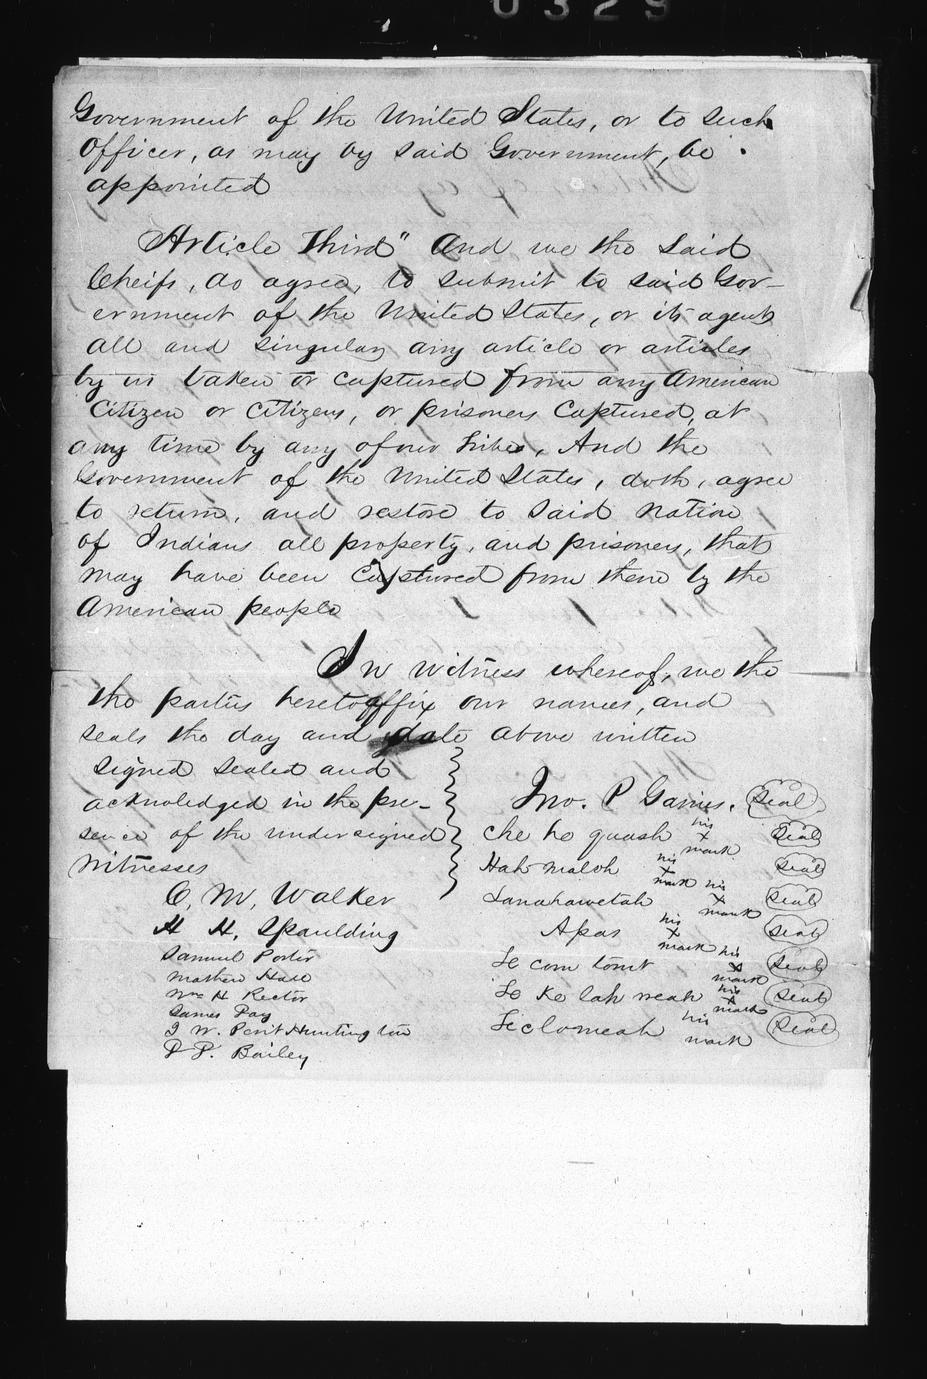 0329
Government of the United States, or to such
Officer, as may by said Government, be
appointed
Article Third" And we the said
Cheifs, do agree, to submit to said Gov-
ernment of the United States, or its agent
all and singular any article or articles
by us taken or captured from any American
Citizen or citizens, or prisoners captured, at
any time by any of our tribes, And the
Government of the United States, doth, agree
to return, and restore to said nation
of Indians all property, and prisoners, that
may have been captured from them by the
American people
In witness whereof, we the
the parties hereto affix our names, and
seals the day and date above written
signed sealed and
acknoledged in the pre-
sence of the undersigned
witnesses
C, M, Walker
H H, Spaulding
Samuel Porter
Mathew Hall
Wm H Rector
James Pay
J W. Perit Huntington
P P. Bailey
Jno. P Gaines. Seal
Che ho quash his x mark Seal
Hah maloh his x mark Seal
Lanahawetah his x mark Seal
Apas his x mark Seal
Le com tomt his x mark Seal
Le Ke lah neah his x mark Seal
Leclomeah his mark Seal